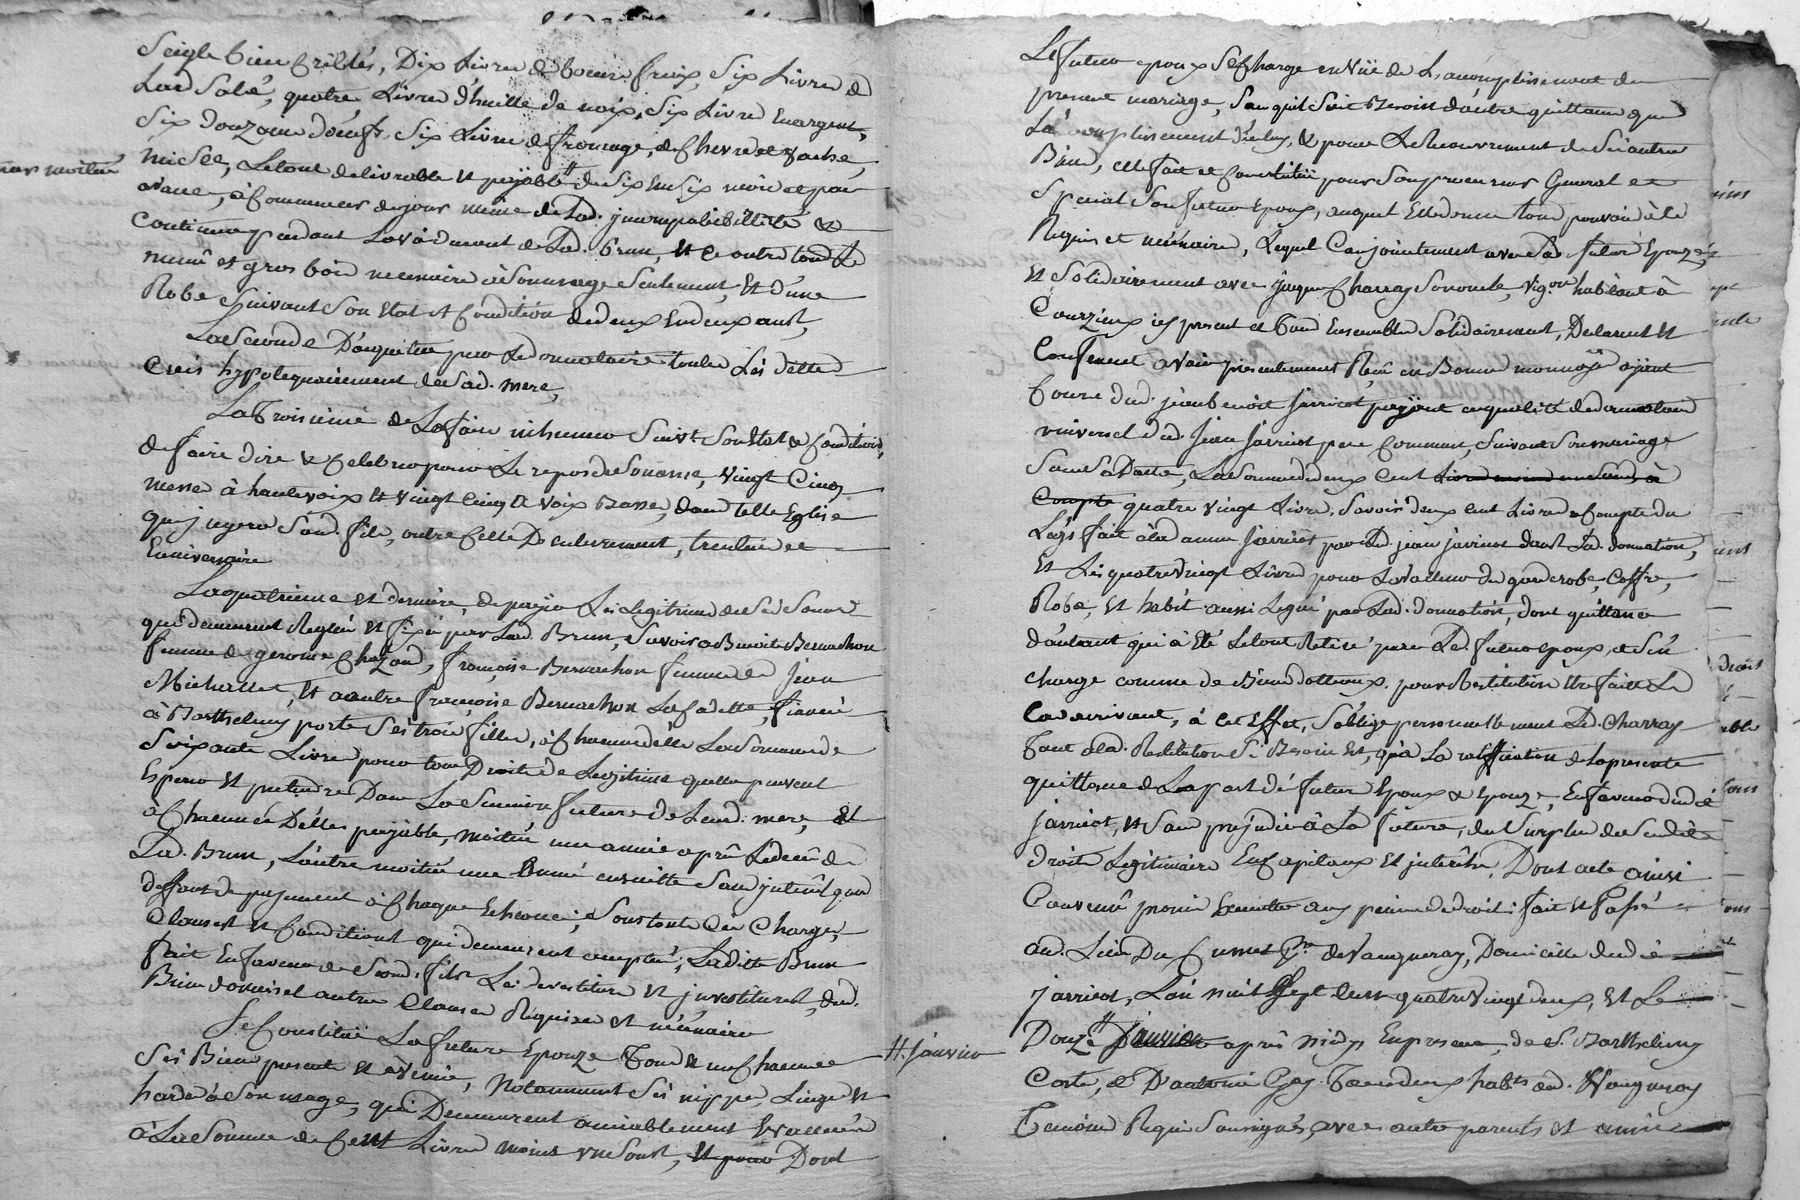 Seigle bien criblés, Dix Livres de beurre fraix, Six Livres de
Lard Salé, quatre Livres d'huille de noix, Six Livres En argent,
Six douzaine d'oeufs, Six Livres de fromage, de chevre et vache,
par moitié
mislée, Letout delivrable et payable # de Six En Six mois et par
avance, à Commencer du jour même de Lad. jncompatibillité &
Continuer pendant La viduité de Lad. Brun, et ce outre tout Le
menu et gros bois necessaire à Son usage Seulement, et d'une
Robe Suivant Son Etat et Condition de deux En deux ans,
La Seconde D'acquitter par Le donnataire toutes Les dettes
Crées hypotequairement de Sad. mere,
La Troisieme de La faire inhumer Suivt. Son Etat & Condition,
de faire dire & Celebrer pour Le repos de Son ame, vingt Cinq
messe à haute voix et vingt Cinq à voix Basse, dans telle Eglise
que jugera Sond. fils, outre Celles D'enterrement, trentain et
Enniversaire
La quatrieme et derniere, de payer Les Legitimes de Ses Soeurs
qui demeurent Reglées et fixées par Lad. Brun, Savoir à Benoite Bernachon
femme de gerome Chazaud, françoise Bernachon femme de Jean
Michallet, et à autre françoise Bernachon La Cadette, fiancée
à Barthelemy porte Ses trois filles, à Chacune d'elle La Somme de
Soixante Livres pour tous Droits de Legitime quelles peuvent
Esperer et pretendre Dans La Succession future de Leurd. mere, et
à Chacune D'elles payable, moitié une année après Le decès de
Lad. Brun, L'autre moitié une année ensuitte Sans jnterêt que
deffaut de payement à Chaque Echeance; Sous toutes Ces Charges,
Clauses et Conditions qui demeurent acceptées, Ladite Brun
fait En faveur de Sond. fils Les devestiture et jnvestitures, dud.
Biens donnés et autres Clauses Requises et nécessaire
Se Constitue La future Epouze Tous et un Chacuns
Ses Biens presents et à venir, Notamment Ses nippes, Linges et
hardes à Son usage, qui Demeurent amiablement Evalluées
à La Somme de Cent Livres moins un Sout, et pour Dont
Le futur epoux Se Charge en vüe de L'accomplissement du
present mariage, Sans quil Soit Besoin d'autre quittance que
L'accomplissement d'icelluy, & pour Le Recouvrement de Ses autres
Biens, elle fait et Constitüe pour Son procureur General et
Special Son futur Epoux, auquel Elle donne tout pouvoir à ce
Requis et nécessaire, Lequel Conjointement avec La future Epouze,
et Solidairement avec jaques Charray Son oncle, vigon habitant à
Courzieux icy present et Tous Ensemble Solidairement, Declarent et
Confessent avoir presentement Reçu en Bonne monnoye ayant
Cours dud. jean benoit jarricot payant en qualité de donnataire
universel dud. Jean Jarricot pere Commun, Suivant Son mariage
Sous Sa Datte, La Somme de deux Cent Livres moins un Sout à
Compte quatre vingt Livres, Savoir deux cent Livres à Compte du
Legs fait à lad. anne Jarricot par Led. jean jarricot dans Lad. donnation,
Et Les quatre vingt Livres pour La valleur du garderobe, Coffre,
Robe, et habit aussi Legué par Lad. donnation, dont quittance
d'autant qui à Eté Letout Retiré par Led. futur epoux, & S'en
charge comme de Biens dottaux, pour Restitution Etre faitte Le
Cas arrivant, à Cet Effet, S'oblige personnellement Led. Charray
Tant à lad. Restitution Si Besoin Est, qu'à La ratiffication de La presente
quittance de La part des futurs Epoux & Epouze, En faveur dud.
jarricot, et Sans prejudice à La future, du Surplus de Ses
droits Legitimaire En Capitaux et jnterêts, Dont acte ainsi
Convenu promis Executter aux peines de droit: fait et Passé
au Lieu Du Crumet Psse. de Vaugneray, Domicille dud.
Jarricot, L'an mil Sept Cent quatre vingt deux, et Le
#. janvier
Douze # après midy En presence, de Sr. Barthelemy
Coste, & D'antoine Gay Tous deux habts. aud. Vaugneray
Temoins Requis Soussignés, avec autre parents et amis